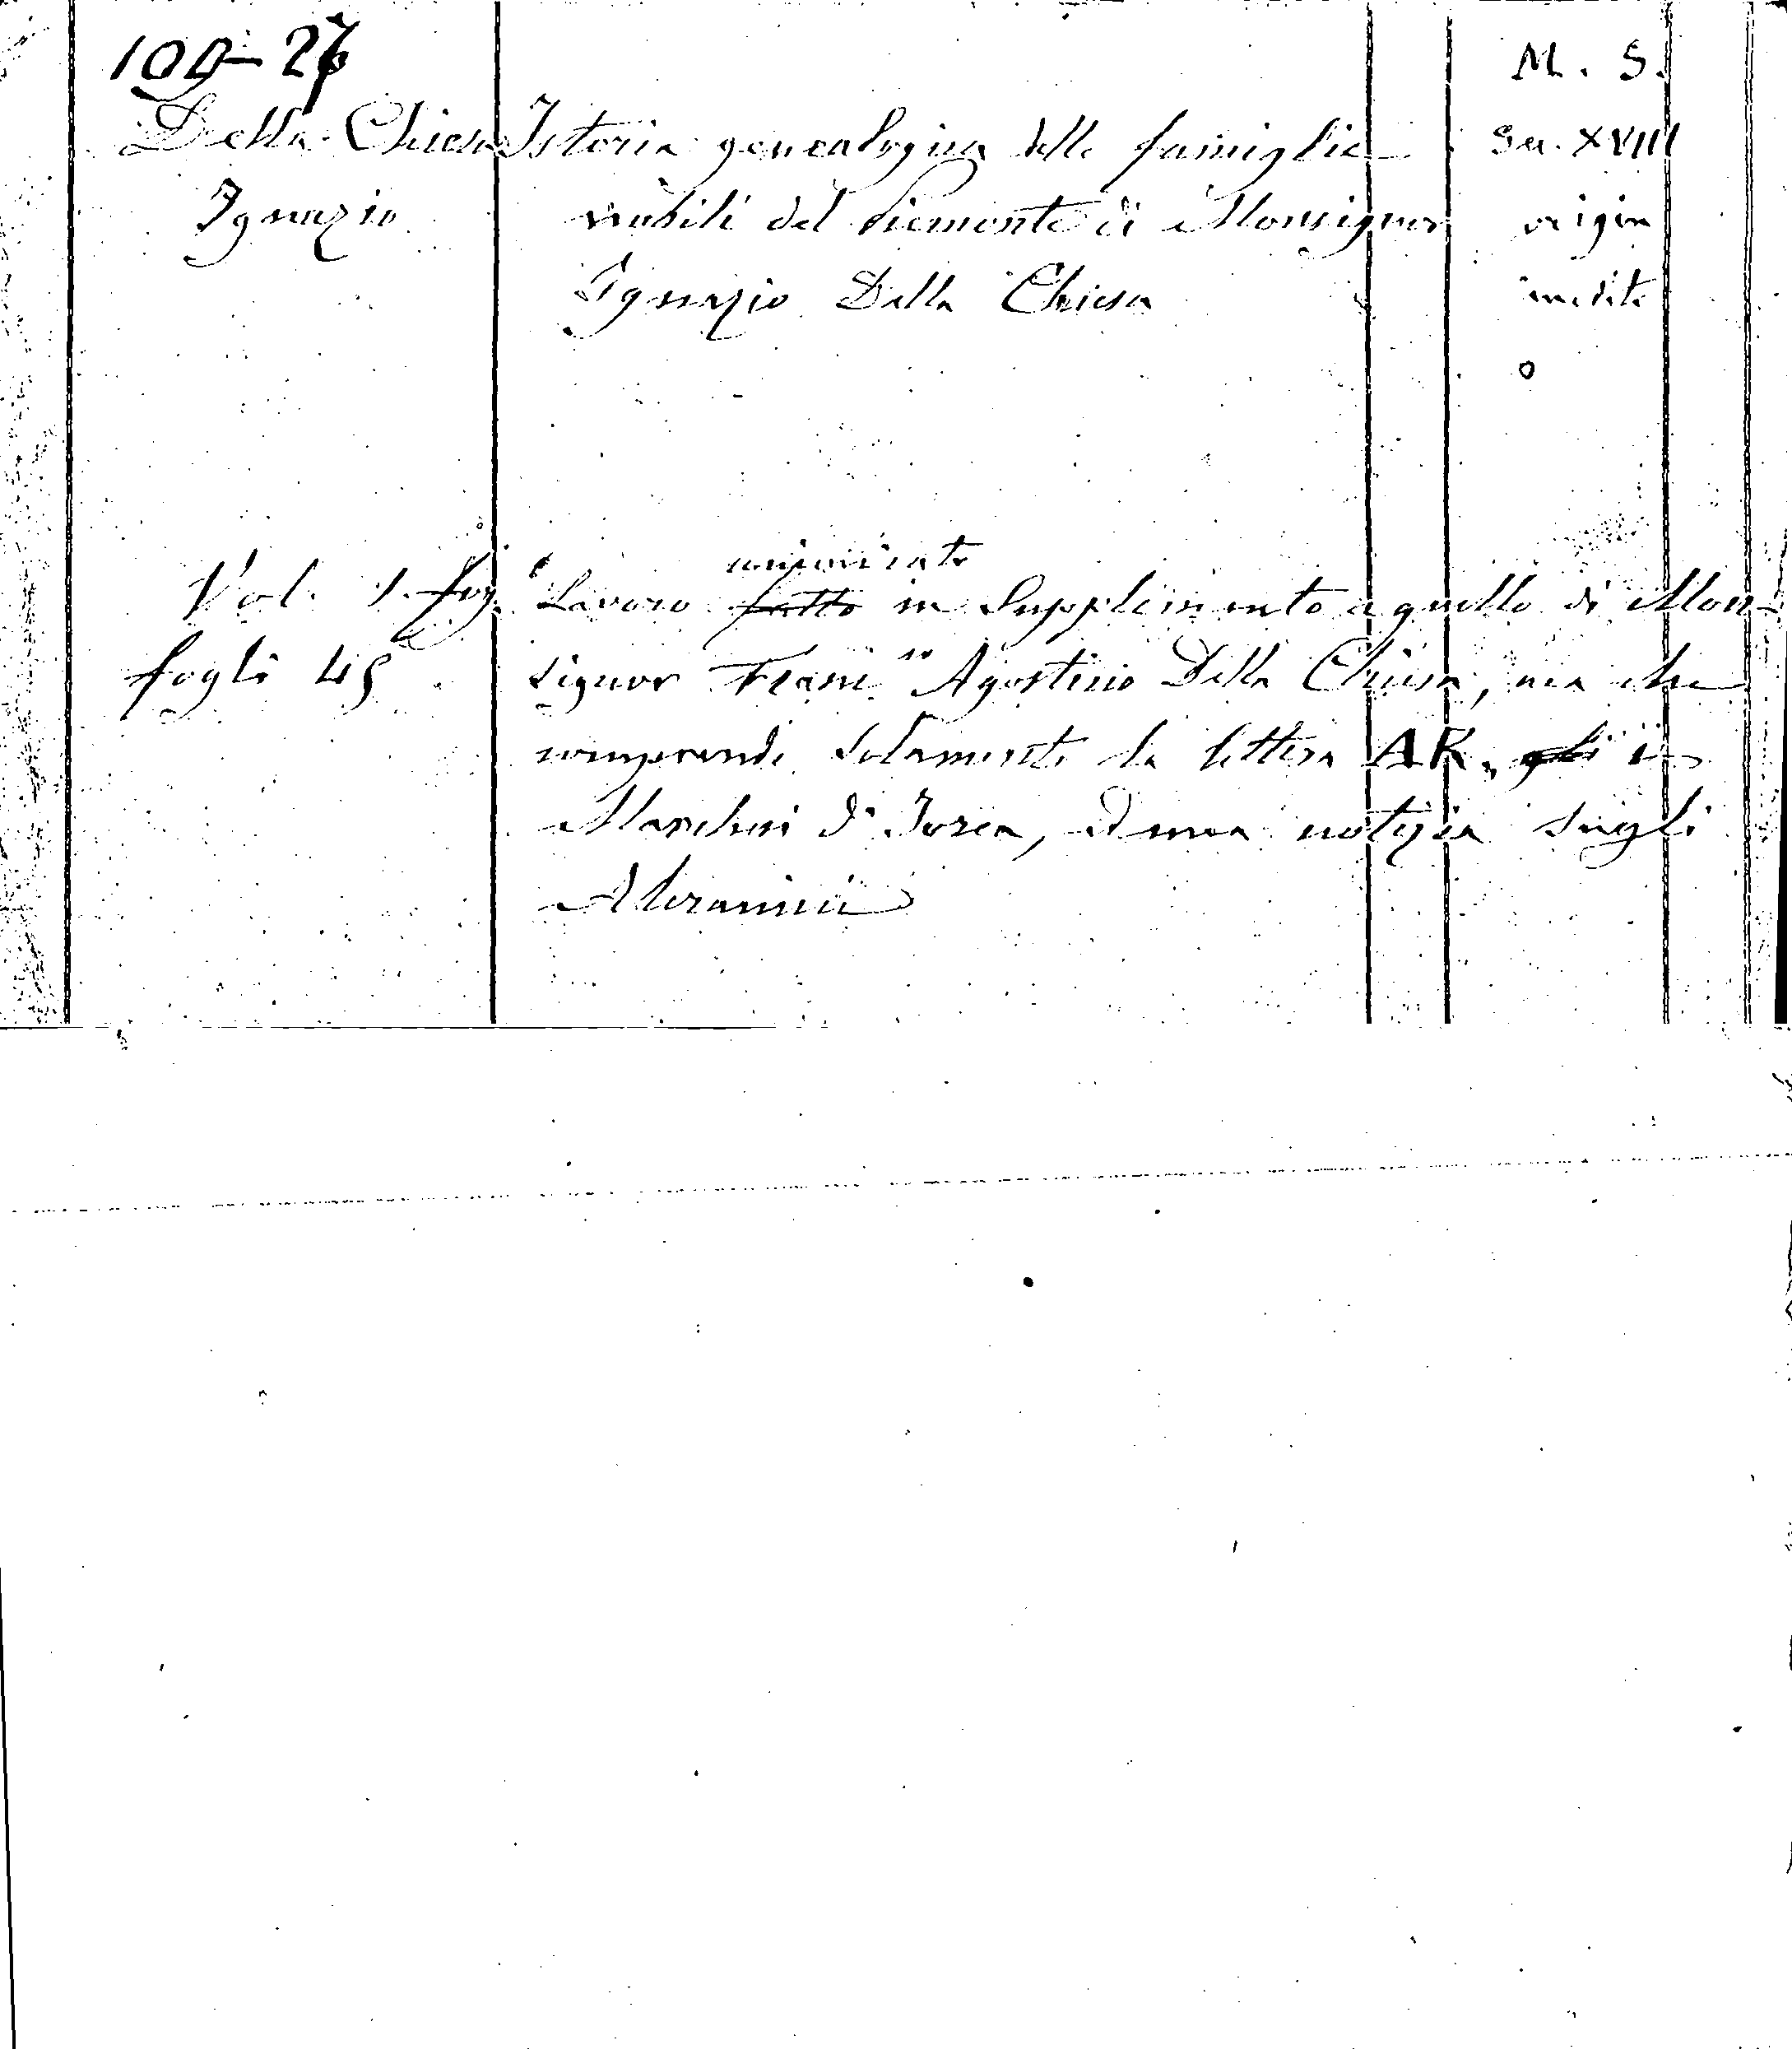 109-27
M. S.
Della Chiesa Istoria genealogica delle famiglie Sec. XVIII
Ignazio nobili del Piemonte di Monsignor origin
Ignazio Della Chiesa inedito
cominciato
Vol. 1. fog. Lavoro fatto in Supplemento a quello di Mon-
fogli 45 signor Franc.co Agostino Della Chiesa, ma che
comprende solamente la lettera AR, gli i
Marchesi d'Ivrea, ed una notizia sugli
Aleramici